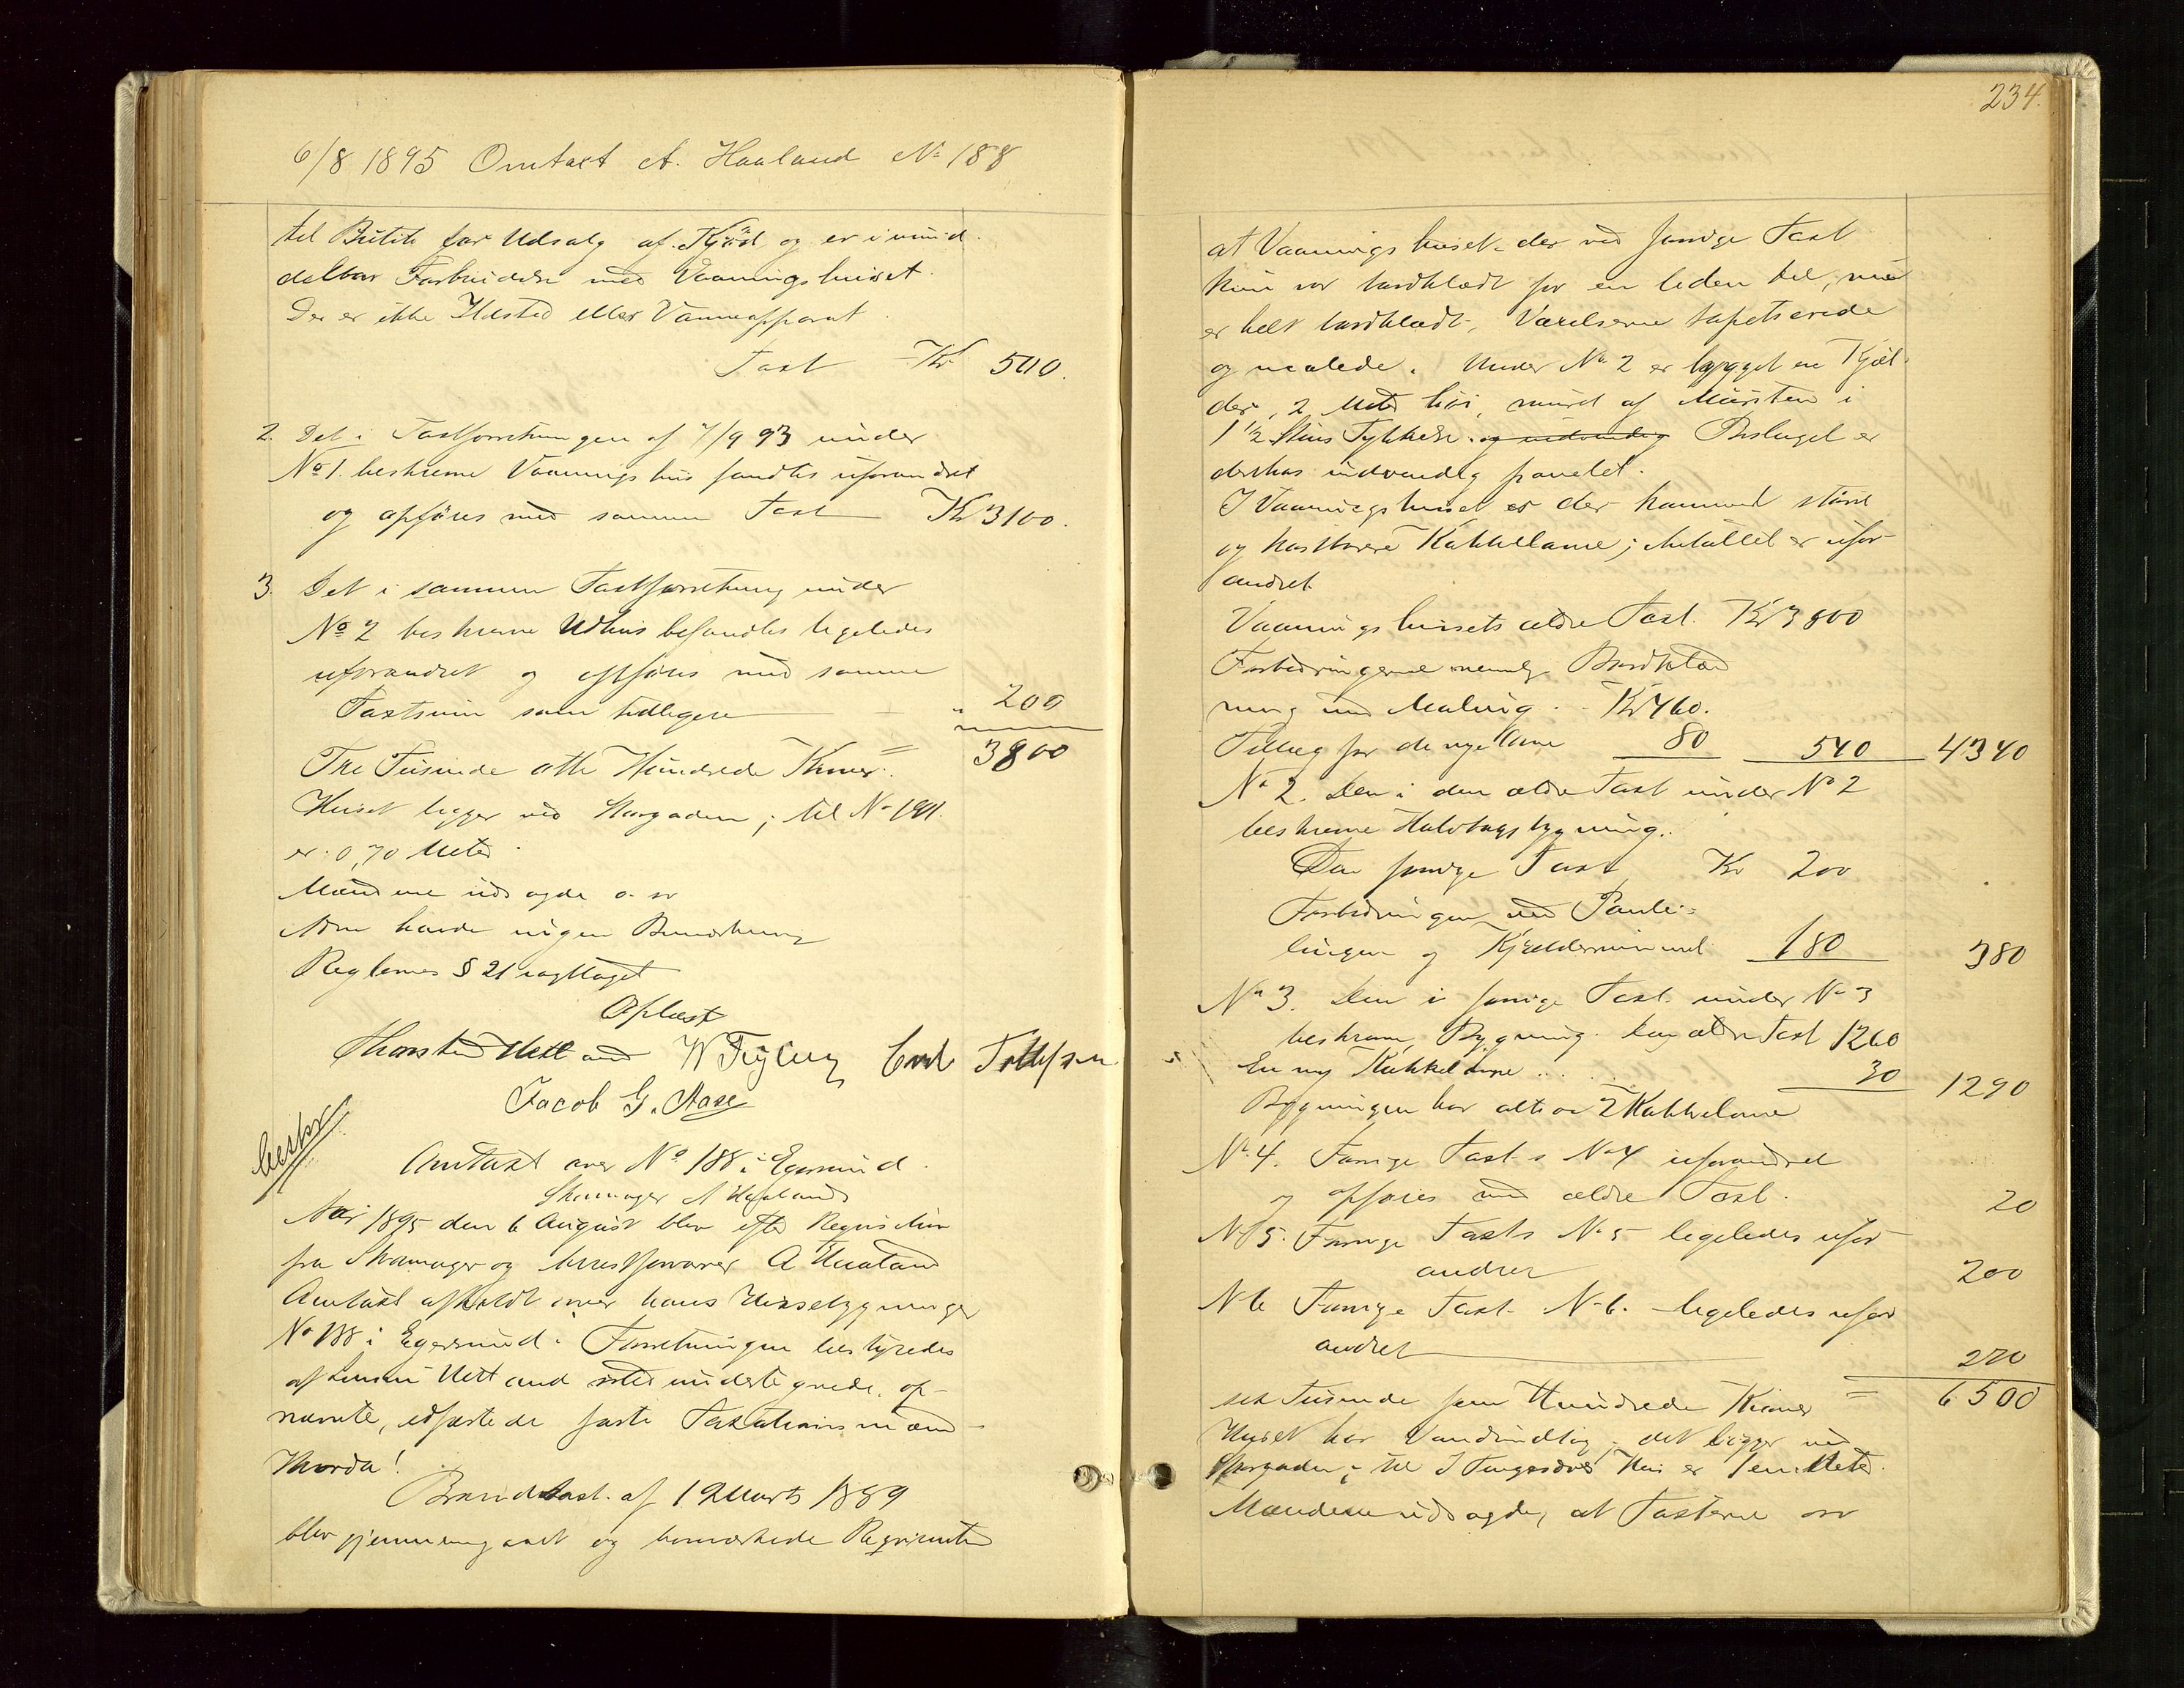 6/8 1895 Omtaxt A. Haaland No 188
til Butik for Udsalg af Kjöd og er i umid
delbar Forbindelse med Vaaningshuset.
Der er ikke Ildsted eller Varmeapparat.
Taxt Kr 500.
2. Det i Taxtforretningen af 7/9 93 under
No 1. beskrevne Vaaningshus fandtes uforandret
og opföres med samme Taxt Kr 3100.
3. Det i samme Taxtforretning under
No 2 beskrevne Udhus befandtes ligeledes
uforandret og opföres med samme
Taxtsum som tidligere " 200
Tre Tusinde otte Hundrede Kroner = 3800
Huset ligger ved Storgaden; til No 191.
er 0,70 Meter.
Mændene udsagde o. sv
Aase havde ingen Bemærkning
Reglernes § 21 iagttaget
Oplæst
Thorsten Hetland W Feyling Emil Tollefsen
Jacob G. Aase
beskr
Omtaxt over No 188 i Egersund.
Skomager A Haalands
Aar 1895 den 6 August blev efter Reqvisition
fra Skomager og A Haaland
Omtaxt afholdt over hans Husebygninger
No 188 i Egersund. Forretningen bestyredes
af Lensm Hetland med undertegnede, op-
nævnte, edfæstede faste Taxationsmænd -
Hvorda!
Brandtaxt af 19 Marts 1889
blev gjennemgaaet og bemærkede Reqvirenten
234.
at Vaaningshuset der ved forrige Taxt
kun var bordklædt for en liden del, nu
er helt bordklædt, Værelserne tapetserede
og malede. Under No 2 er bygget en Kjæl
der, 2 Meter höi, muret af Mursten i
1 1/2 Stens Tykkelse. og indvendig Beslaget er
derhos indvendig panelet.
I Vaaningshuset er der kommet större
og kostbarere Kakkelovne; Antallet er ufor-
andret.
Vaaningshusets ældre Taxt. Kr 3800
Forbedringerne nemlig Bordklæd
ning med Maling. Kr 460.
Tillæg for de nye Ovne 80 540 4340
No 2. Den i den ældre Taxt under No 2
beskrevne Halvtagsbygning.
Den forrige Taxt Kr 200
Forbedringen ved Pane-
lingen og Kjælderrummet 180 380
No 3. Den i forrige Taxt under No 3
beskrevne Bygning. ældre Taxt 1260
En ny Kakkelovn ... 30 1290
Bygningen har altsaa 2 Kakkelovne
No 4. Forrige Taxts No 4 uforandret
og opföres med ældre Taxt. 20
No 5. Forrige Taxts No 5 ligeledes ufor-
andret 200
No 6 Forrige Taxt No 6. ligeledes ufor
andret 270
sex Tusinde fem Hundrede Kroner = 6500
Huset har Vandindlæg; det ligger ved
Storgaden; til Hus er 1 en Meter.
Mændene udsagde, at Taxterne osv